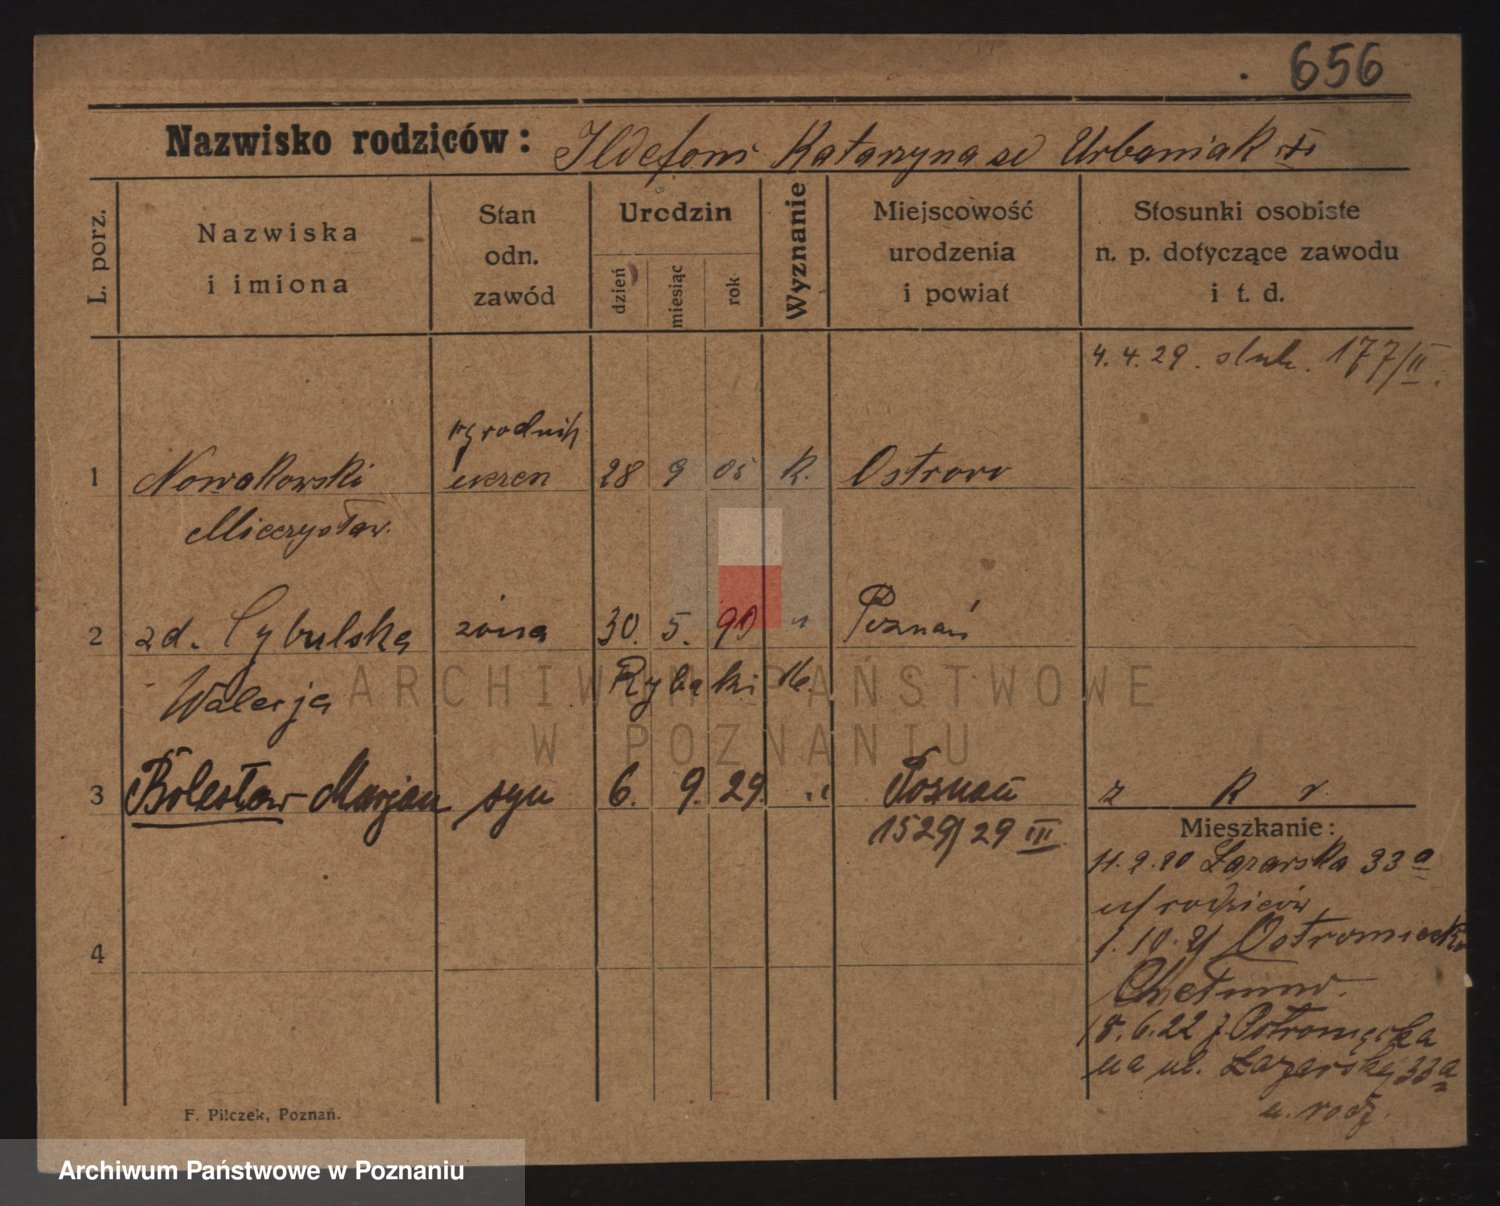 656
Nazwisko rodziców: Ildefons Katarzyna zd Urbaniak
L. porz.
Nazwiska
i imiona
Stan
odn.
zawód
Urodzin
dzień
miesiąc
rok
Wyznanie
Miejscowość
urodzenia
i powiat
Stosunki osobiste
n. p. dotyczące zawodu
i t. d.
4. 4. 29. slub. 177/II.
ogrodnik
1 Nowakowski uczen 28 9 05 k. Ostrovo
Mieczysław.
2 zd. Cybulska żona 30. 5. 90 " Poznań
Walerja Rybaki 16.
3 Bolesław Marjan syn 6. 9. 29. " Poznań z k r
1529/29 III
Mieszkanie:
11.9.20 Łazarska 33a
u/ rodziców
1.10.21 Ostromecko
Chełmno.
4
18.6.22 z Ostromęcka
na ul. Łazarskiej 33a
u. rodz.
F. Pilczek, Poznań.
ARCHIWUM PAŃSTWOWE
W POZNANIU
Archiwum Państwowe w Poznaniu